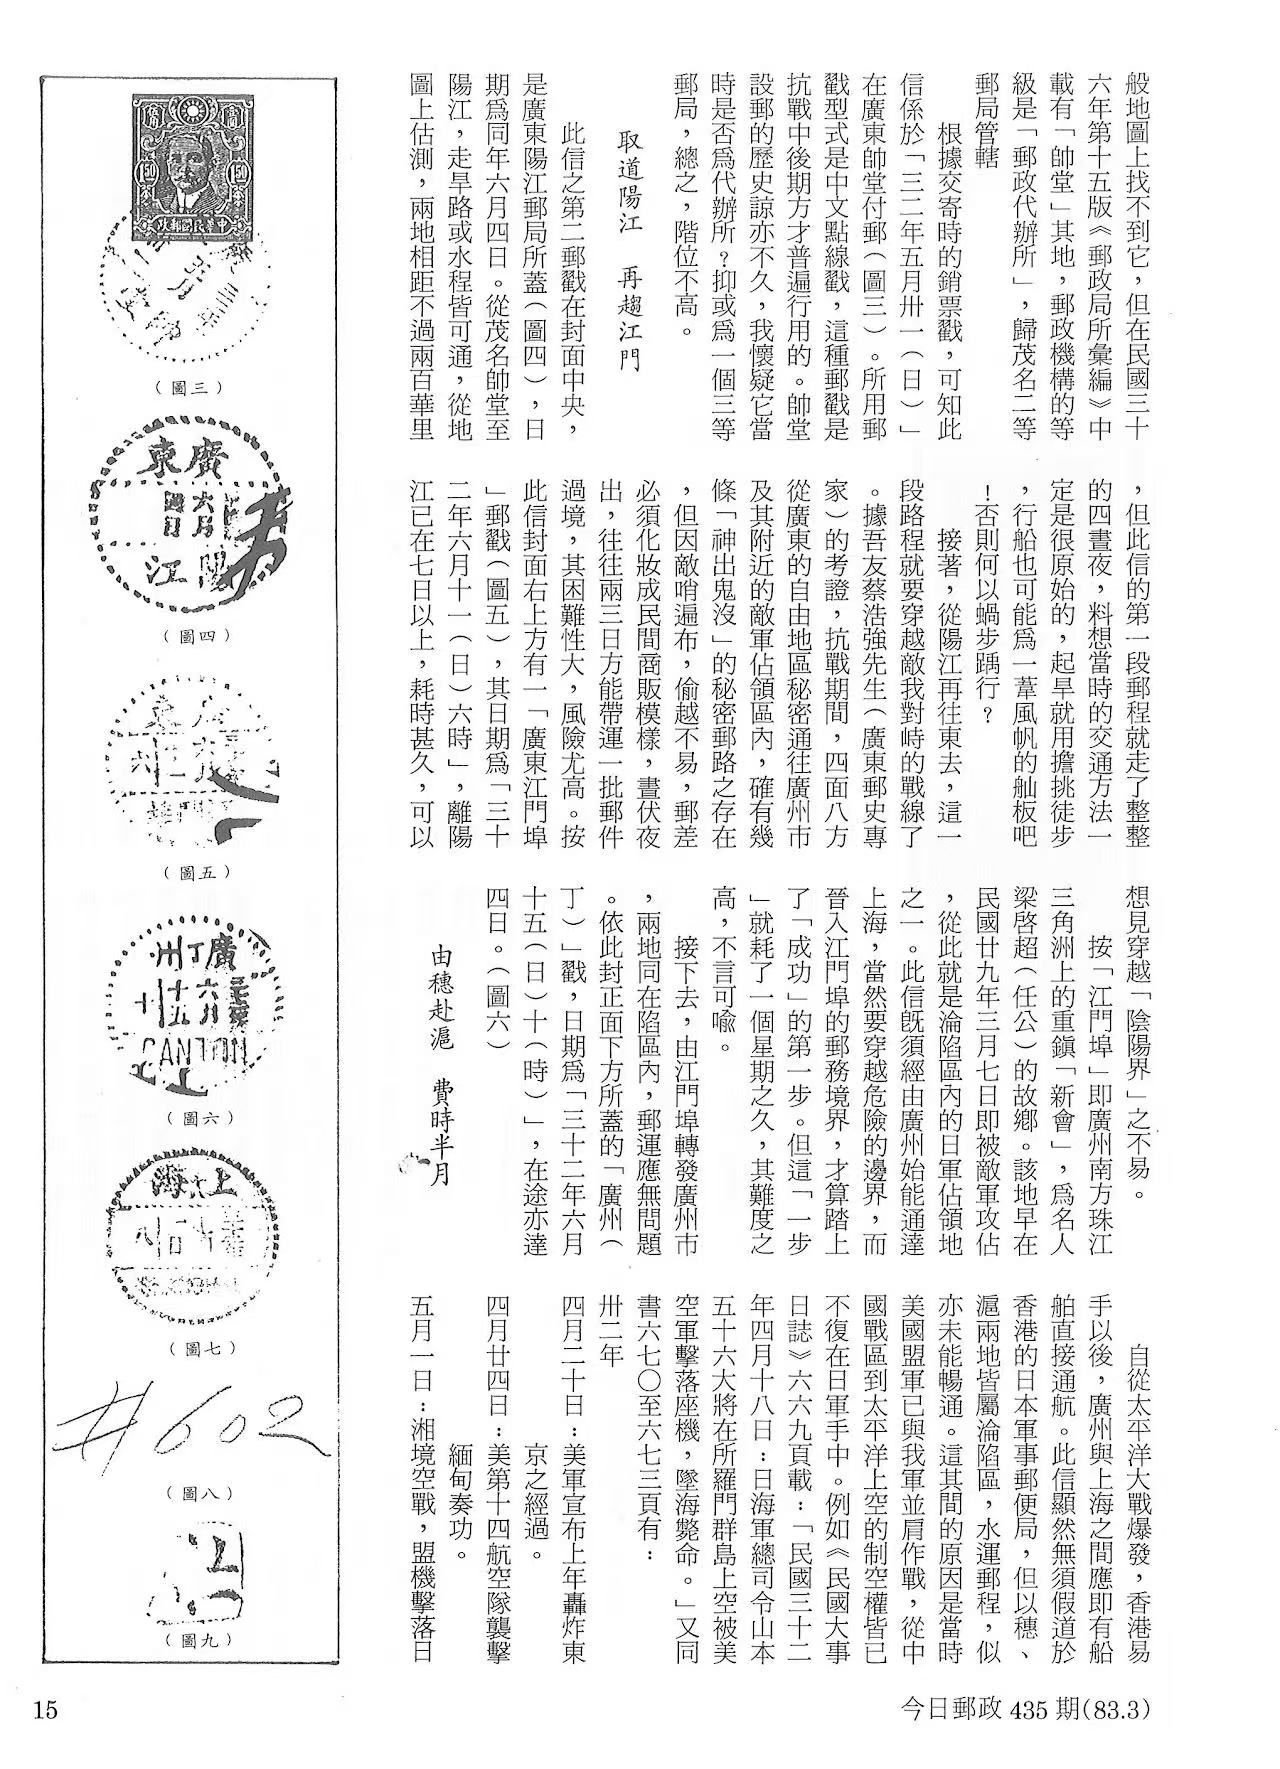 般地圖上找不到它，但在民國三十
六年第十五版《郵政局所彙編》中
載有「帥堂」其地，郵政機構的等
級是「郵政代辦所」，歸茂名二等
郵局管轄
根據交寄時的銷票戳，可知此
信係於「三二年五月卅一（日）」
在廣東帥堂付郵（圖三）。所用郵
戳型式是中文點線戳，這種郵戳是
抗戰中後期方才普遍行用的。帥堂
設郵的歷史諒亦不久，我懷疑它當
時是否爲代辦所？抑或爲一個三等
郵局，總之，階位不高。
取道陽江　再趨江門
此信之第二郵戳在封面中央，
是廣東陽江郵局所蓋（圖四），日
期爲同年六月四日。從茂名帥堂至
陽江，走旱路或水程皆可通，從地
圖上估測，兩地相距不過兩百華里
，但此信的第一段郵程就走了整整
的四晝夜，料想當時的交通方法一
定是很原始的，起旱就用擔挑徒步
，行船也可能爲一葦風帆的舢板吧
！否則何以蝸步踽行？
接著，從陽江再往東去，這一
段路程就要穿越敵我對峙的戰線了
。據吾友蔡浩強先生（廣東郵史專
家）的考證，抗戰期間，四面八方
從廣東的自由地區秘密通往廣州市
及其附近的敵軍佔領區內，確有幾
條「神出鬼沒」的秘密郵路之存在
，但因敵哨遍布，偷越不易，郵差
必須化妝成民間商販模樣，晝伏夜
出，往往兩三日方能帶運一批郵件
過境，其困難性大，風險尤高。按
此信封面右上方有一「廣東江門埠
」郵戳（圖五），其日期爲「三十
二年六月十一（日）六時」，離陽
江已在七日以上，耗時甚久，可以
想見穿越「陰陽界」之不易。
按「江門埠」即廣州南方珠江
三角洲上的重鎮「新會」，爲名人
梁啓超（任公）的故鄉。該地早在
民國廿九年三月七日即被敵軍攻佔
，從此就是淪陷區內的日軍佔領地
之一。此信既須經由廣州始能通達
上海，當然要穿越危險的邊界，而
晉入江門埠的郵務境界，才算踏上
了「成功」的第一步。但這「一步
」就耗了一個星期之久，其難度之
高，不言可喩。
接下去，由江門埠轉發廣州市
，兩地同在陷區內，郵運應無問題
。依此封正面下方所蓋的「廣州（
丁）」戳，日期爲「三十二年六月
十五（日）十（時）」，在途亦達
四日。（圖六）
由穗赴滬　費時半月
自從太平洋大戰爆發，香港易
手以後，廣州與上海之間應即有船
舶直接通航。此信顯然無須假道於
香港的日本軍事郵便局，但以穗、
滬兩地皆屬淪陷區，水運郵程，似
亦未能暢通。這其間的原因是當時
美國盟軍已與我軍並肩作戰，從中
國戰區到太平洋上空的制空權皆已
不復在日軍手中。例如《民國大事
日誌》六六九頁載：「民國三十二
年四月十八日：日海軍總司令山本
五十六大將在所羅門群島上空被美
空軍擊落座機，墜海斃命。」又同
書六七〇至六七三頁有：
卅二年
四月二十日：美軍宣布上年轟炸東
京之經過。
四月廿四日：美第十四航空隊襲擊
緬甸奏功。
五月一日：湘境空戰，盟機擊落日
中華民國郵政
150
150
（圖三）
廣東
六月
四日
陽江
（圖四）
（圖五）
廣州丁
六月
十五
十
CANTON
（圖六）
上海
（圖七）
#602
（圖八）
（圖九）
15
今日郵政 435 期(83.3)